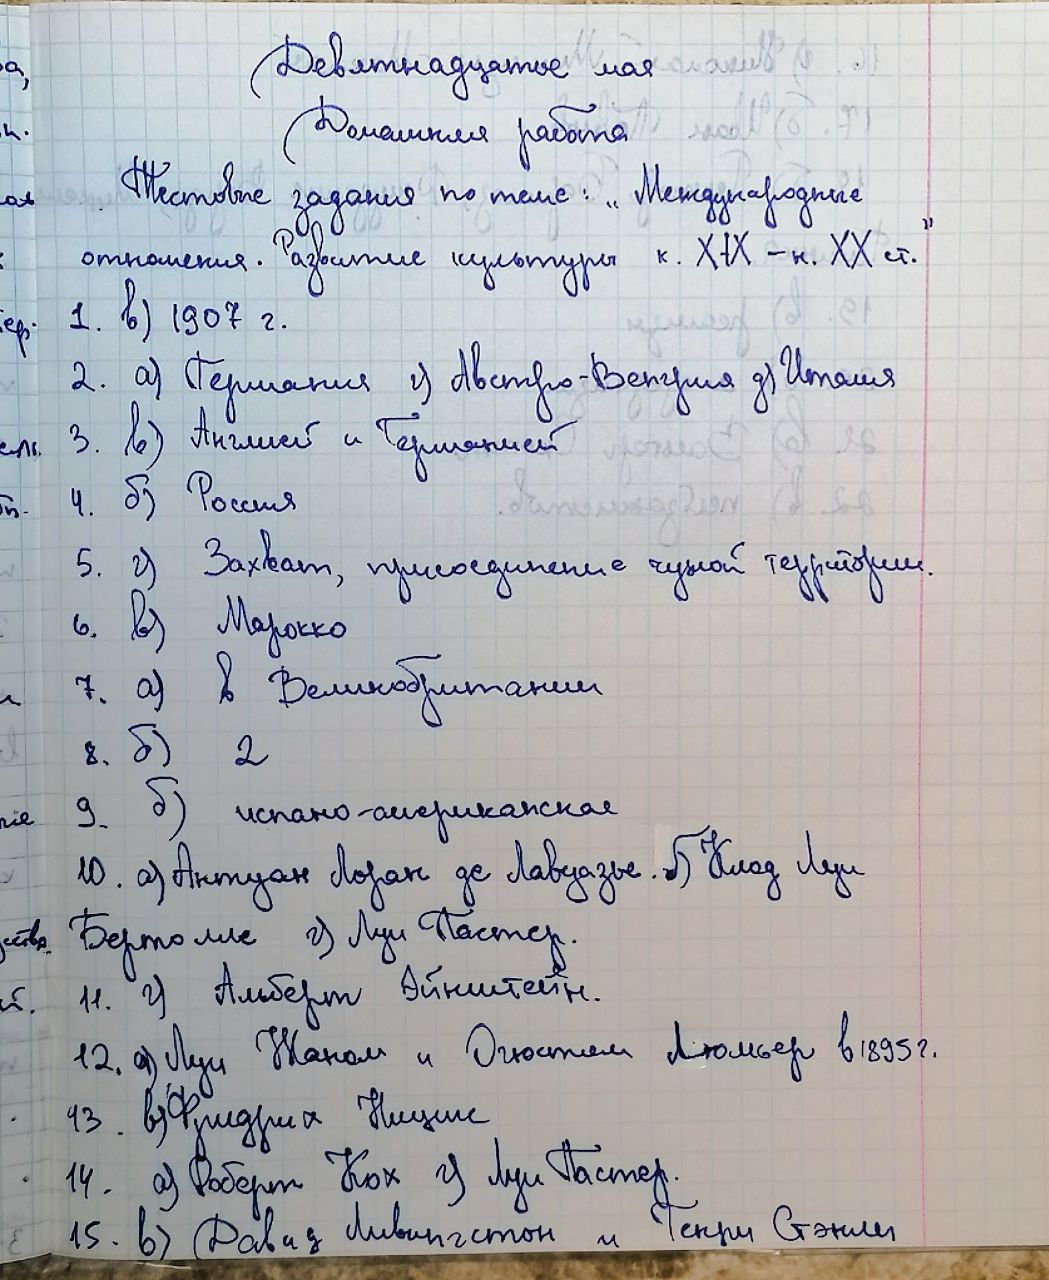 Девятнадцатое мая
Домашняя работа
Тестовые задания по теме: „Международные
отношения. Развитие культуры к. XIX – н. XX ст."
1. в) 1907 г.
2. а) Германия г) Австро-Венгрия д) Италия
3. в) Англией и Германией
4. б) Россия
5. г) Захват, присоединение чужой территории.
6. в) Марокко
7. а) в Великобритании
8. б) 2
9. б) испано-американская
10. а) Антуан Лоран де Лавуазье. б) Клод Луи
Бертолле г) Луи Пастер.
11. г) Альберт Эйнштейн.
12. а) Луи Жаном и Огюстом Люмьер в 1895 г.
13. в) Фридрих Ницше
14. а) Роберт Кох г) Луи Пастер.
15. в) Давид Ливингстон и Генри Стэнли